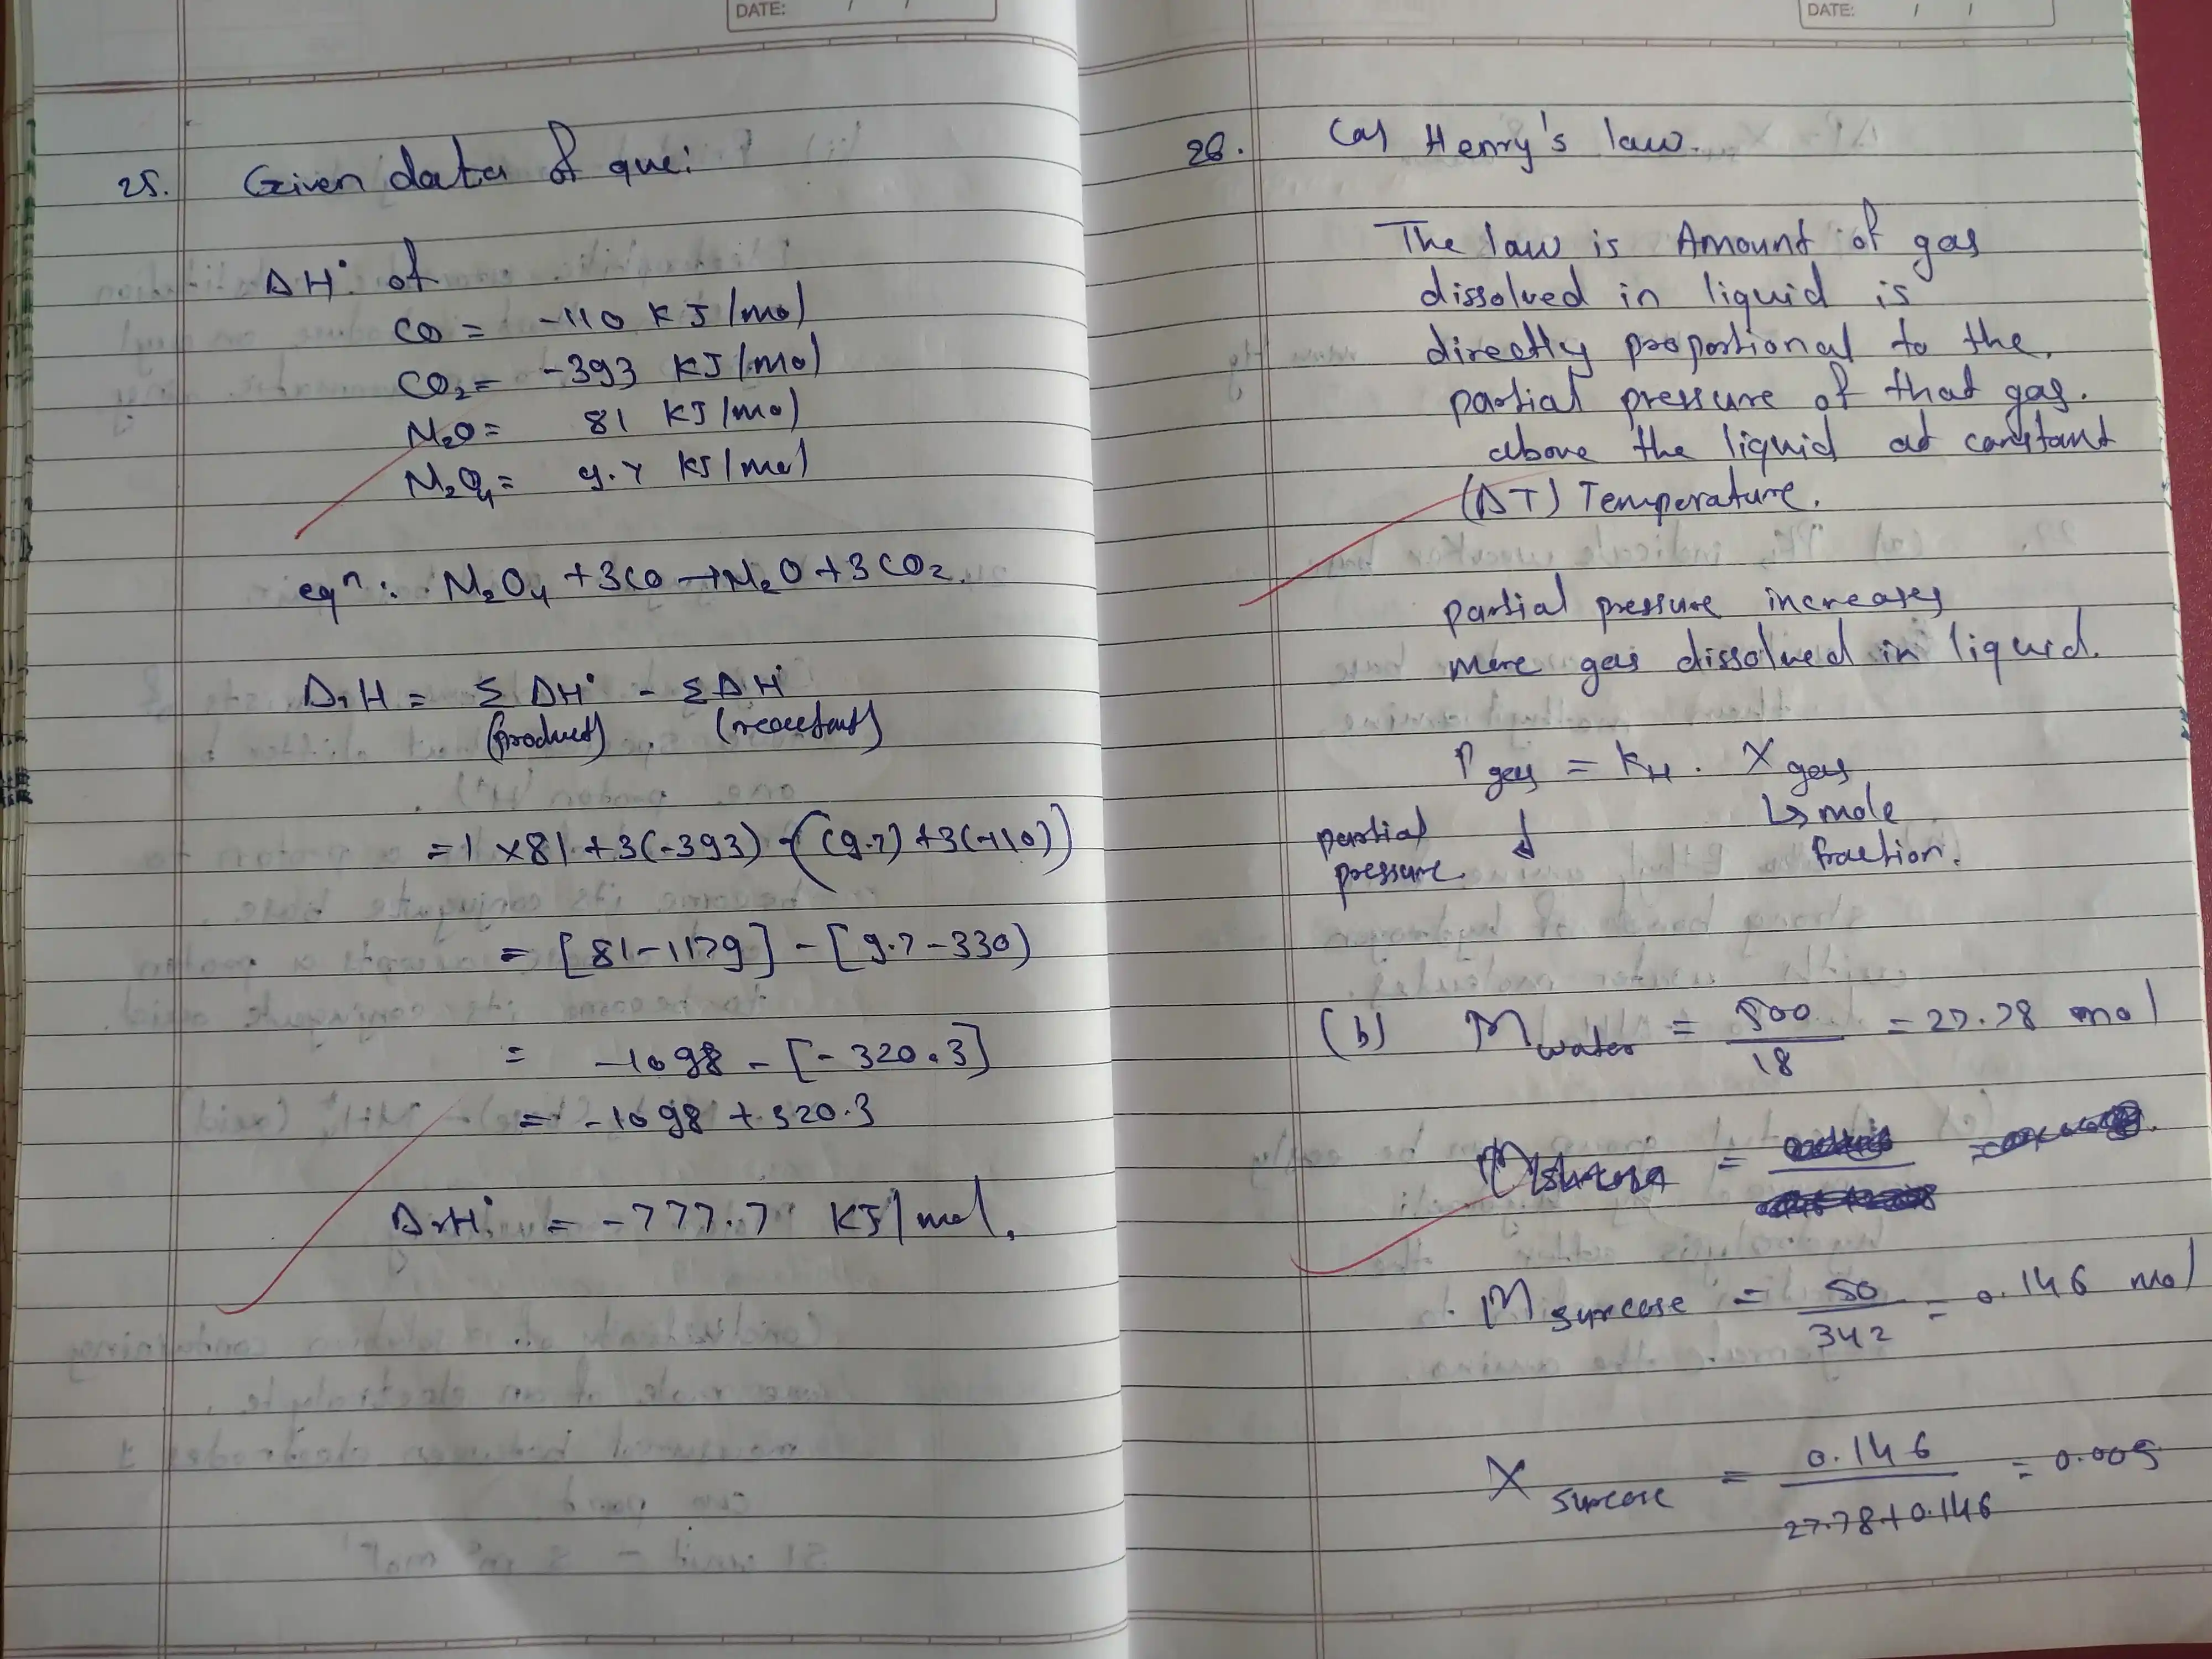 DATE: / /
25. Given data of que:
ΔH° of
CO = -110 KJ/mol
CO₂ = -393 KJ/mol
N₂O = 81 KJ/mol
N₂O₄ = 9.7 KJ/mol
eqⁿ: N₂O₄ + 3CO → N₂O + 3CO₂.
ΔrH = Σ ΔH° - ΣΔH°
(product) (reactant)
= 1 × 81 + 3(-393) - ((9.7) + 3(-110))
= [81-1179] - [9.7-330)
= -1098 - [-320.3]
= -1098 + 320.3
ΔrH° = -777.7 KJ/mol.
DATE: / /
26. (a) Henry's law.
The law is Amount of gas
dissolved in liquid is
directly proportional to the.
partial pressure of that gas.
above the liquid at constant
(ΔT) Temperature.
partial pressure increases
more gas dissolved in liquid.
P gas = KH . X gas
partial pressure. ↓ ↳ mole fraction.
(b) M water = 500/18 = 27.78 mol
M sucrose = 50/342 = 0.146 mol
X sucrose = 0.146/27.78+0.146 = 0.005